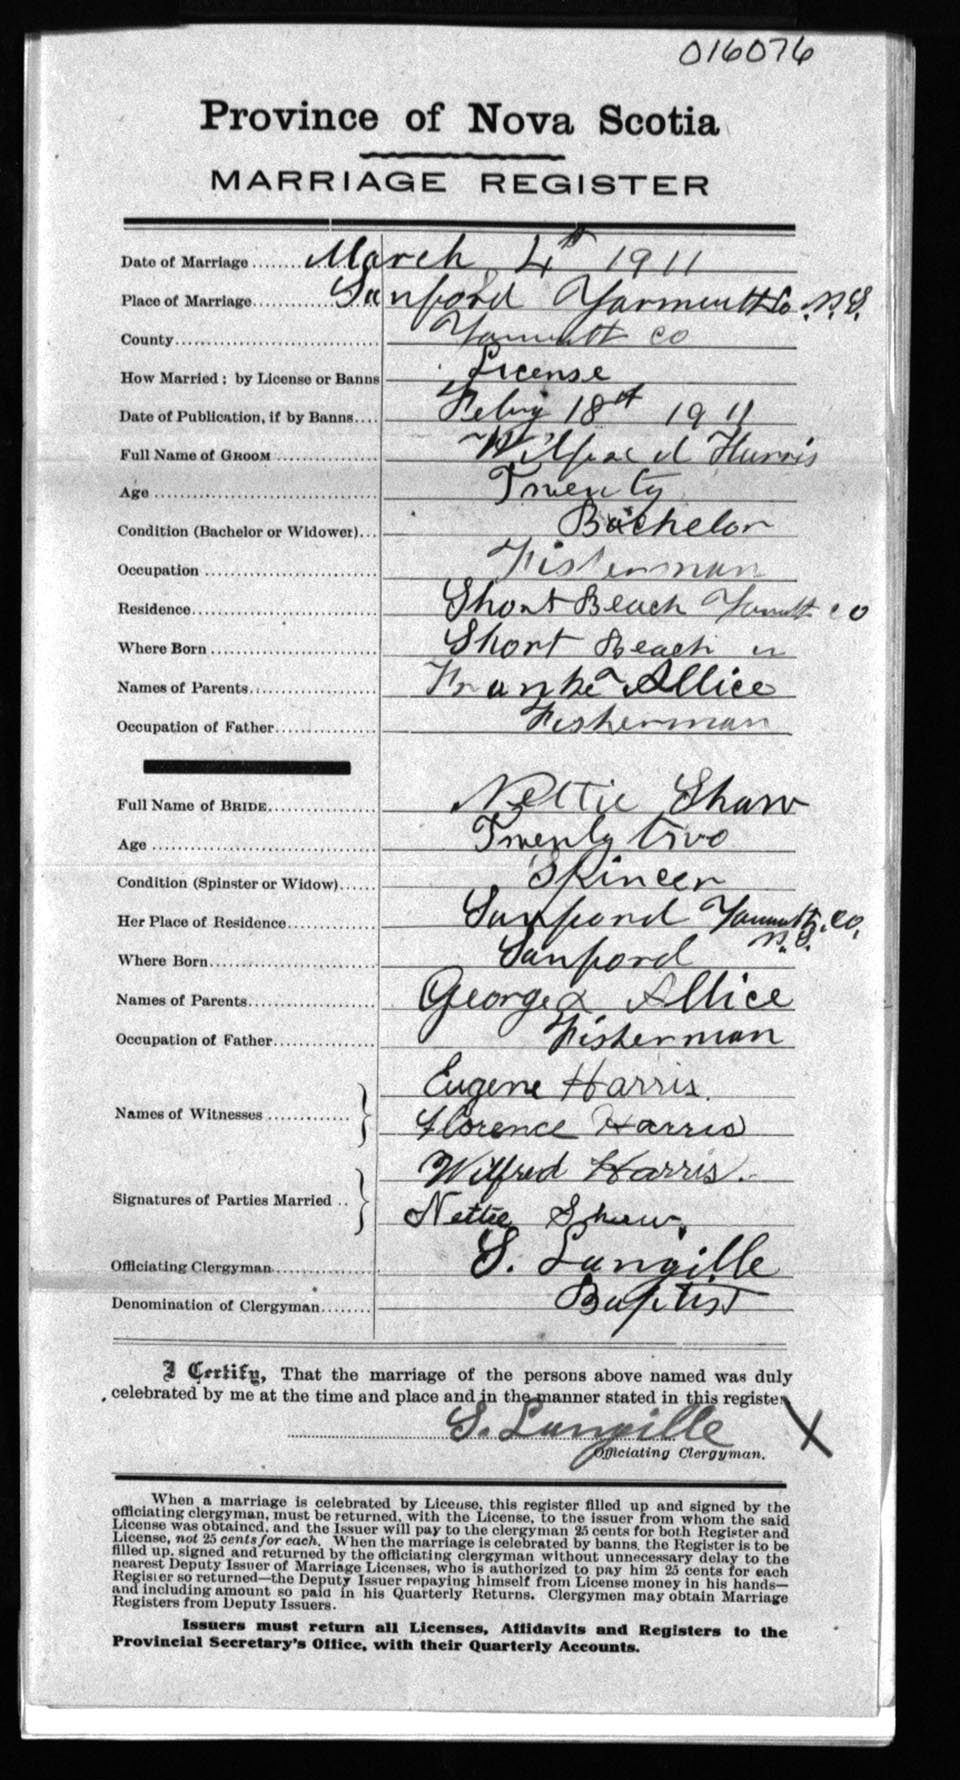 016076
Province of Nova Scotia
MARRIAGE REGISTER
Date of Marriage ....... March 4th 1911
Place of Marriage............ Sanford Yarmouth Co. N.S.
County.............................. Yarmouth co
How Married: by License or Banns License
Date of Publication, if by Banns.... Feby 18th 1911
Full Name of GROOM ............... Wilfred Harris
Age ................................. Twenty
Condition (Bachelor or Widower)... Bachelor
Occupation ......................... Fisherman
Residence........................... Short Beach Yarmouth co
Where Born ......................... Short Beach "
Names of Parents.................. Frank & Allice
Occupation of Father............... Fisherman
Full Name of BRIDE................ Nettie Shaw
Age ................................. Twenty two
Condition (Spinster or Widow)......
Her Place of Residence............. Sanford Yarmouth. Co. N.S.
Where Born......................... Sanford
Names of Parents.................. George & Allice
Occupation of Father............... Fisherman
Eugene Harris.
Names of Witnesses ............. }
Florence Harris
Wilfred Harris.
Signatures of Parties Married .. }
Nettie Shaw.
Officiating Clergyman................ S. Langille
Denomination of Clergyman........ Baptist
I Certify, That the marriage of the persons above named was duly
celebrated by me at the time and place and in the manner stated in this register.
S. Langille X
Officiating Clergyman.
When a marriage is celebrated by License, this register filled up and signed by the
officiating clergyman, must be returned, with the License, to the issuer from whom the said
License was obtained, and the Issuer will pay to the clergyman 25 cents for both Register and
License, not 25 cents for each. When the marriage is celebrated by banns, the Register is to be
filled up, signed and returned by the officiating clergyman without unnecessary delay to the
nearest Deputy Issuer of Marriage Licenses, who is authorized to pay him 25 cents for each
Register so returned—the Deputy Issuer repaying himself from License money in his hands—
and including amount so paid in his Quarterly Returns. Clergymen may obtain Marriage
Registers from Deputy Issuers.
Issuers must return all Licenses, Affidavits and Registers to the
Provincial Secretary's Office, with their Quarterly Accounts.